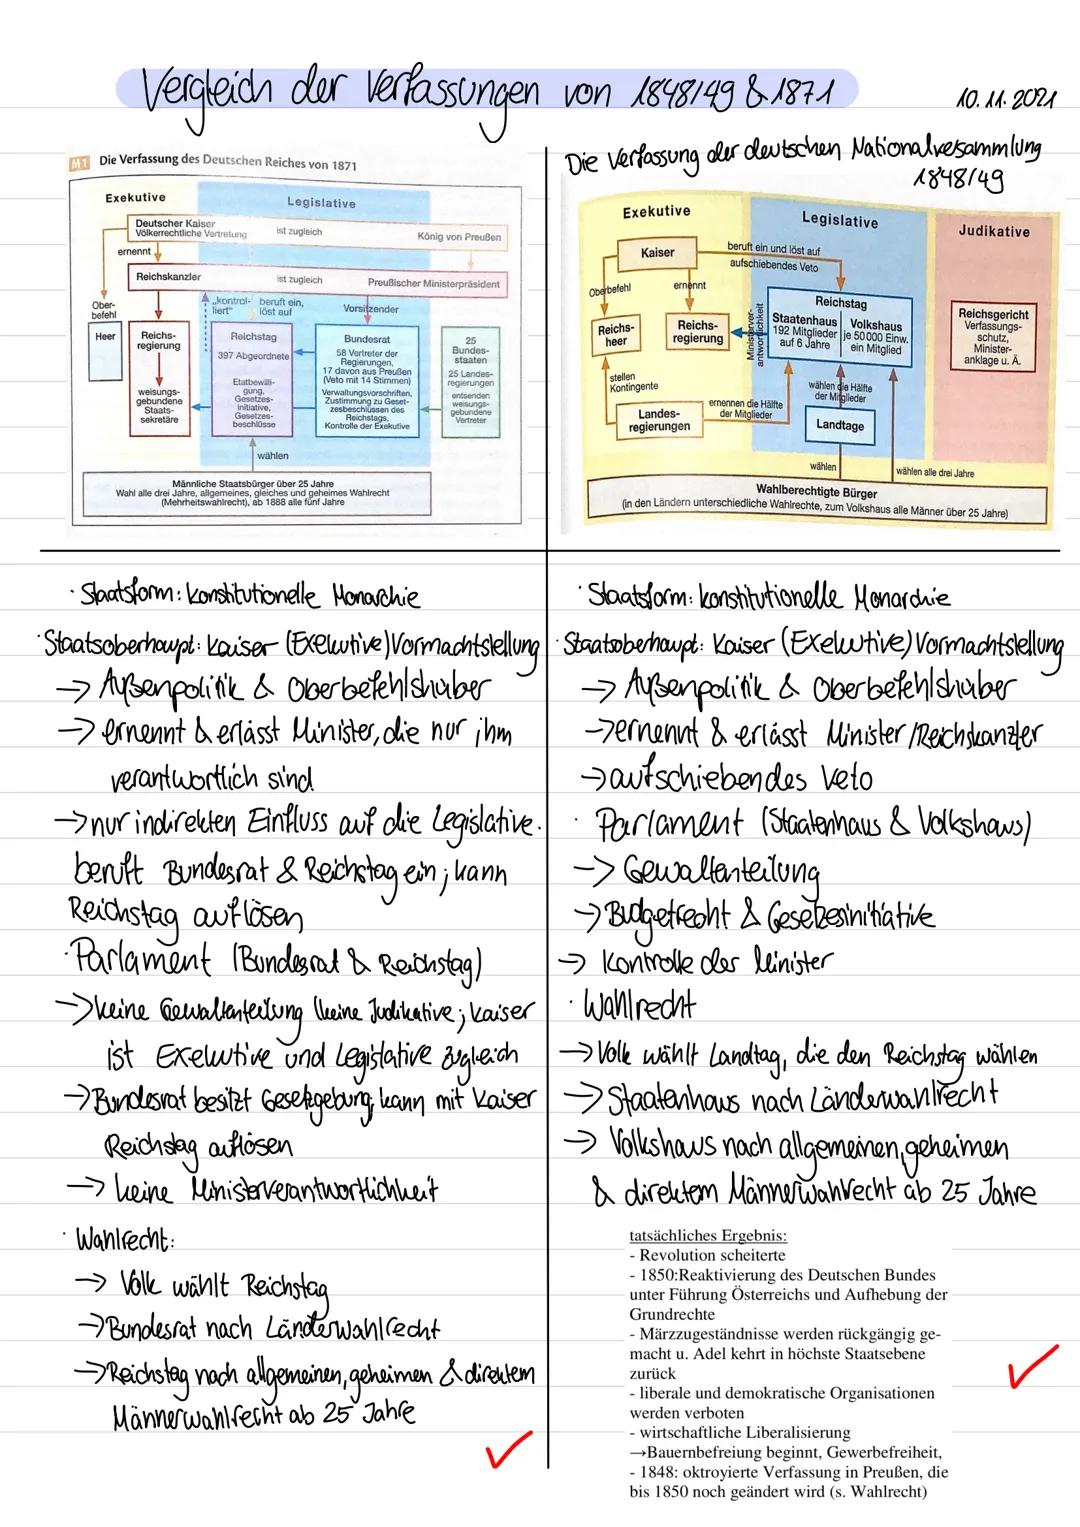 Vergleich der Verfassungen von 1848/49 & 1871
10.11.2021
M1 Die Verfassung des Deutschen Reiches von 1871
Exekutive
Legislative
Deutscher Kaiser
Völkerrechtliche Vertretung
ist zugleich
König von Preußen
ernennt
Reichskanzler
ist zugleich
Preußischer Ministerpräsident
Ober-
befehl
„kontrol-
liert"
beruft ein,
löst auf
Vorsitzender
Heer
Reichs-
regierung
weisungs-
gebundene
Staats-
sekretäre
Reichstag
397 Abgeordnete
Etatbewilli-
gung,
Gesetzes-
initiative,
Gesetzes-
beschlüsse
Bundesrat
58 Vertreter der
Regierungen,
17 davon aus Preußen
(Veto mit 14 Stimmen)
Verwaltungsvorschriften,
Zustimmung zu Geset-
zesbeschlüssen des
Reichstags,
Kontrolle der Exekutive
25
Bundes-
staaten
25 Landes-
regierungen
entsenden
weisungs-
gebundene
Vertreter
wählen
Männliche Staatsbürger über 25 Jahre
Wahl alle drei Jahre, allgemeines, gleiches und geheimes Wahlrecht
(Mehrheitswahlrecht), ab 1888 alle fünf Jahre
· Staatsform: konstitutionelle Monarchie
· Staatsoberhaupt: Kaiser (Exekutive) Vormachtstellung
→ Außenpolitik & Oberbefehlshaber
→ ernennt & erlässt Minister, die nur ihm
verantwortlich sind
→ nur indirekten Einfluss auf die Legislative.
beruft Bundesrat & Reichstag ein; kann
Reichstag auflösen
· Parlament (Bundesrat & Reichstag)
→ keine Gewaltenteilung (keine Judikative; Kaiser
ist Exekutive und Legislative zugleich
→ Bundesrat besitzt Gesetzgebung; kann mit Kaiser
Reichstag auflösen
→ keine Ministerverantwortlichkeit
· Wahlrecht:
→ Volk wählt Reichstag
→ Bundesrat nach Länderwahlrecht
→ Reichstag nach allgemeinen, geheimen & direktem
Männerwahlrecht ab 25 Jahre
Die Verfassung der deutschen Nationalversammlung
1848/49
Exekutive
Legislative
Judikative
Kaiser
beruft ein und löst auf
aufschiebendes Veto
Oberbefehl
ernennt
Reichs-
heer
Reichs-
regierung
Ministerver-
antwortlichkeit
Reichstag
Staatenhaus
192 Mitglieder
auf 6 Jahre
Volkshaus
je 50 000 Einw.
ein Mitglied
Reichsgericht
Verfassungs-
schutz,
Minister-
anklage u. Ä.
stellen
Kontingente
wählen die Hälfte
der Mitglieder
Landes-
regierungen
ernennen die Hälfte
der Mitglieder
Landtage
wählen
wählen alle drei Jahre
Wahlberechtigte Bürger
(in den Ländern unterschiedliche Wahlrechte, zum Volkshaus alle Männer über 25 Jahre)
· Staatsform: konstitutionelle Monarchie
· Staatoberhaupt: Kaiser (Exekutive) Vormachtstellung
→ Außenpolitik & Oberbefehlshaber
→ ernennt & erlässt Minister/Reichskanzler
→ aufschiebendes Veto
· Parlament (Staatenhaus & Volkshaus)
→ Gewaltenteilung
→ Budgetrecht & Gesetzesinitiative
→ Kontrolle der Minister
· Wahlrecht
→ Volk wählt Landtag, die den Reichstag wählen
→ Staatenhaus nach Länderwahlrecht
→ Volkshaus nach allgemeinen, geheimen
& direktem Männerwahlrecht ab 25 Jahre
tatsächliches Ergebnis:
- Revolution scheiterte
- 1850:Reaktivierung des Deutschen Bundes
unter Führung Österreichs und Aufhebung der
Grundrechte
- Märzzugeständnisse werden rückgängig ge-
macht u. Adel kehrt in höchste Staatsebene
zurück
- liberale und demokratische Organisationen
werden verboten
- wirtschaftliche Liberalisierung
→Bauernbefreiung beginnt, Gewerbefreiheit,
- 1848: oktroyierte Verfassung in Preußen, die
bis 1850 noch geändert wird (s. Wahlrecht)